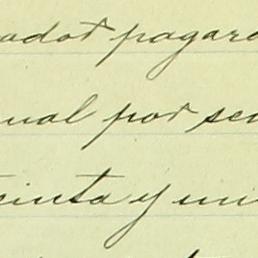 adot pagara
ual por sem
cinta y un